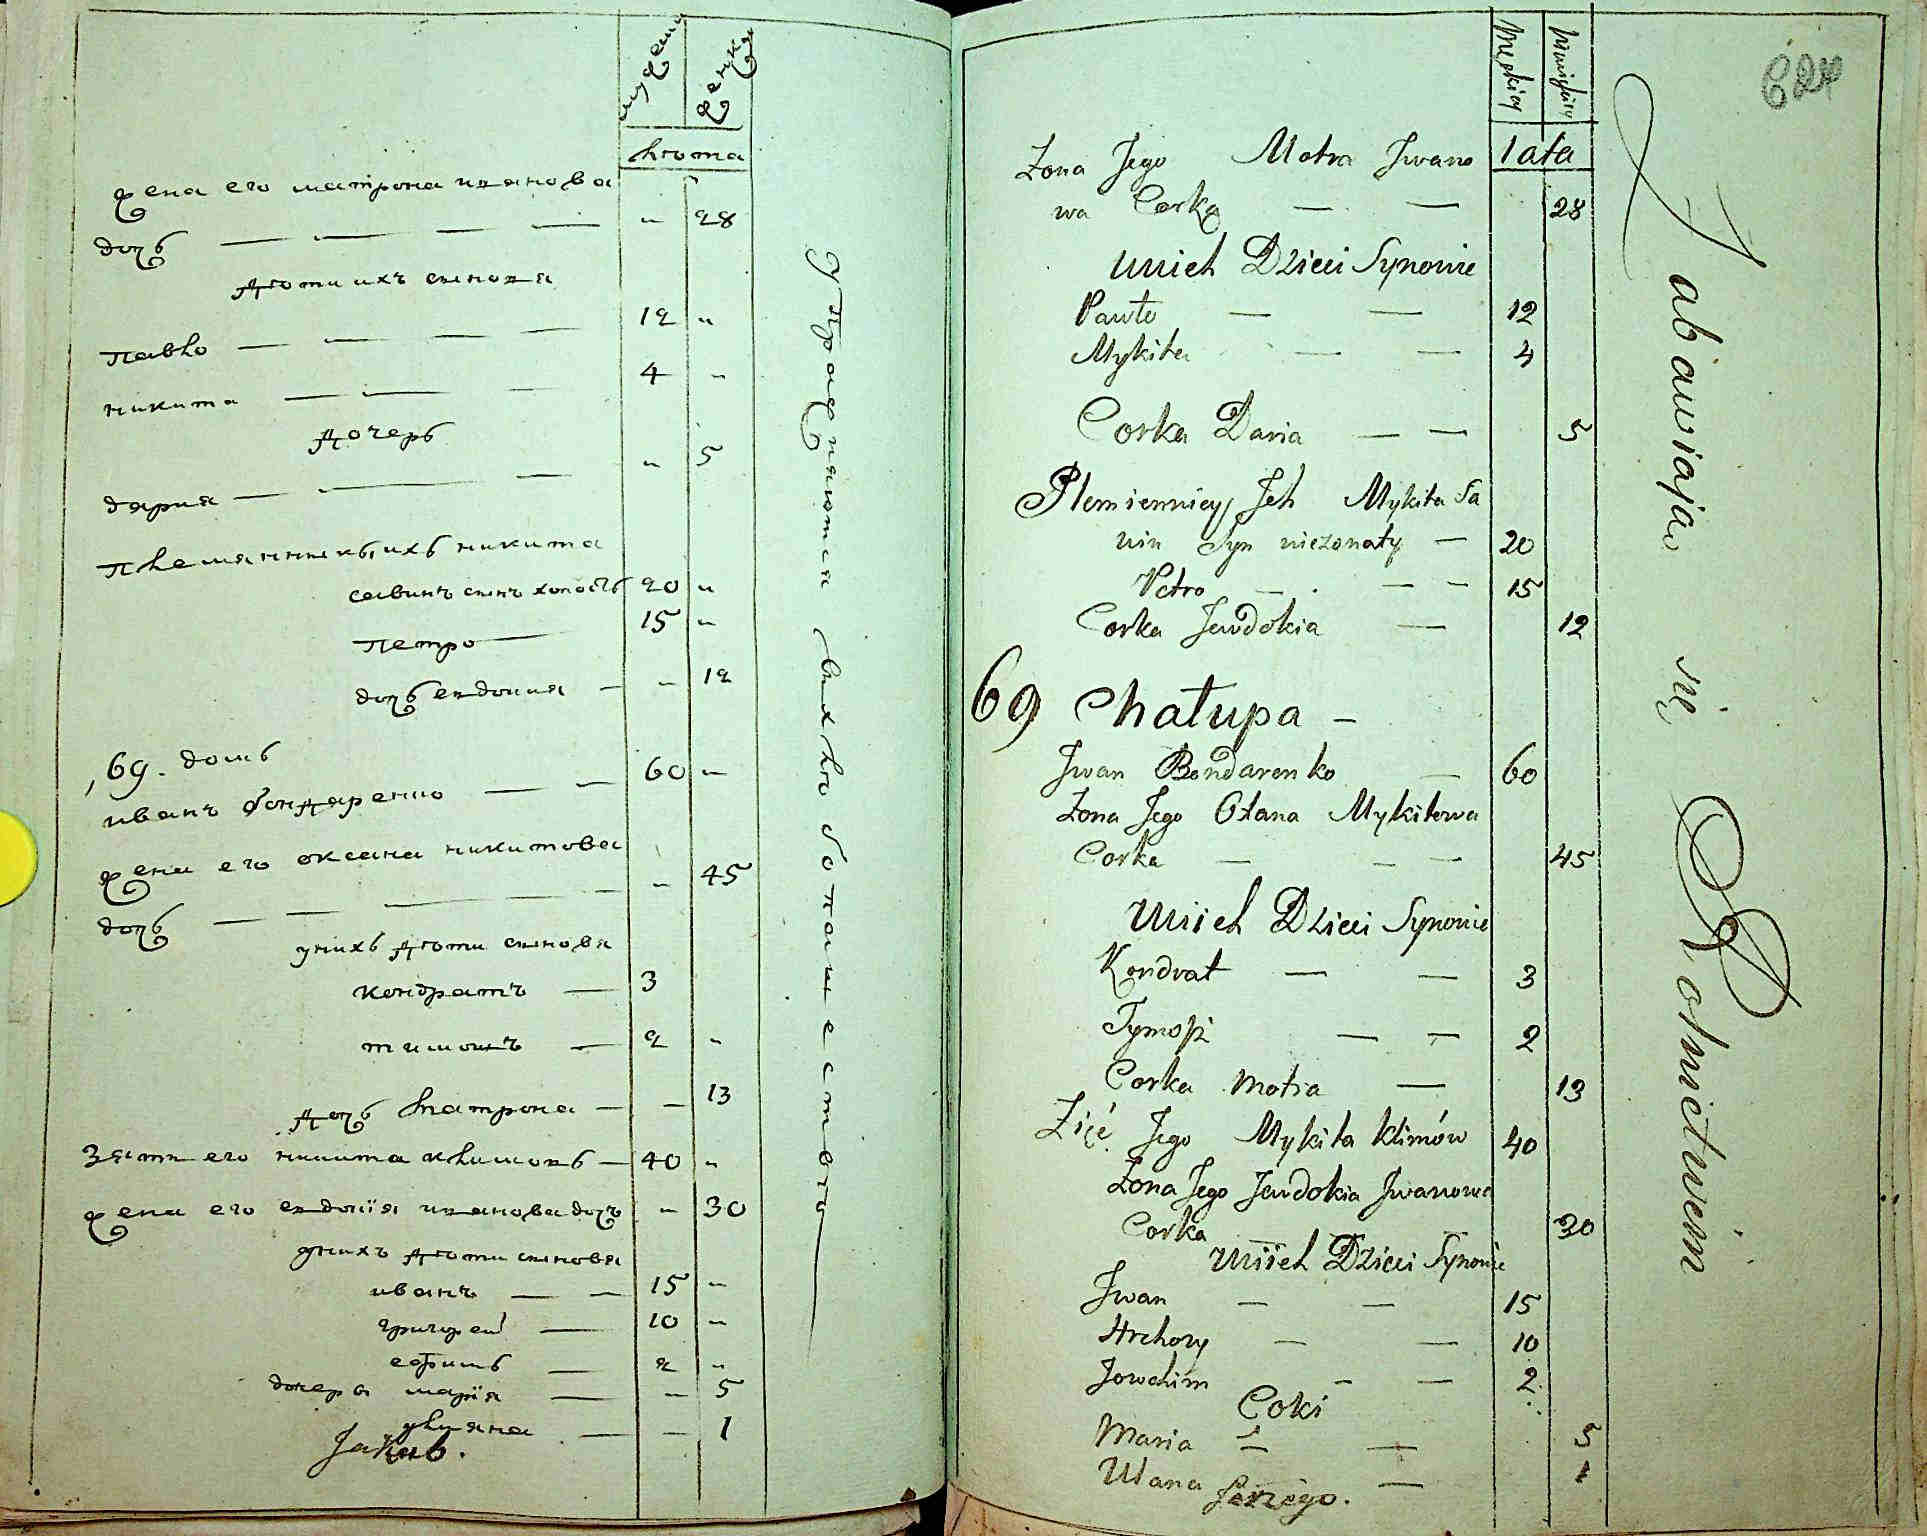 мужеск
женск
лѣта
жена его матрона иванова
дочь — — — — " 28
дѣти ихъ сыновя
павло — — — — 12 "
никита — — — 4 "
дочерь
дария — — — " 5
племянники ихъ никита
савинъ сынъ холостъ 20 "
петро — 15 "
дочь евдокия — " 12
69. домъ
иванъ бондаренко — — 60 "
жена его оксана никитова
дочь — — — — " 45
унихъ дѣти сыновя
кондратъ — 3
тимошъ — 2 "
дочь матрона — — 13
Зять его никита климовъ — 40 "
жена его евдокія иванова дочъ " 30
унихъ дѣти сыновя
иванъ — — 15 "
григорей — 10 "
ефимъ — 2 "
дочеря марія — — 5
уляна — — 1
Jakub.
Упражняются въ хлѣбопашествѣ
624
Męzkiey
Lata
Zona Jego Motra Jwano
wa Corka — — 28
Unich Dzieci Synowie
Pawło — — 12
Mykita — — 4
Corka Daria — — 5
Plemiennicy Jch Mykita Sa
win Syn niezonaty — 20
Petro — — — 15
Corka Jewdokia — 12
69 Chałupa —
Jwan Bondarenko — 60
Zona Jego Oxana Mykitowa
Corka — — — 45
Unich Dzieci Synowie
Kondrat — — 3
Tymosz — — 2
Corka Motra — 13
Zięć Jego Mykita Klimów 40
Zona Jego Jewdokia Jwanowa
Corka 30
Unich Dzieci Synowie
Jwan — — 15
Hrehory — — 10
Jowchim — — 2
Coki
Maria — — 5
Ulana — 1
Jerzego.
Zabawiają się Rolnictwem